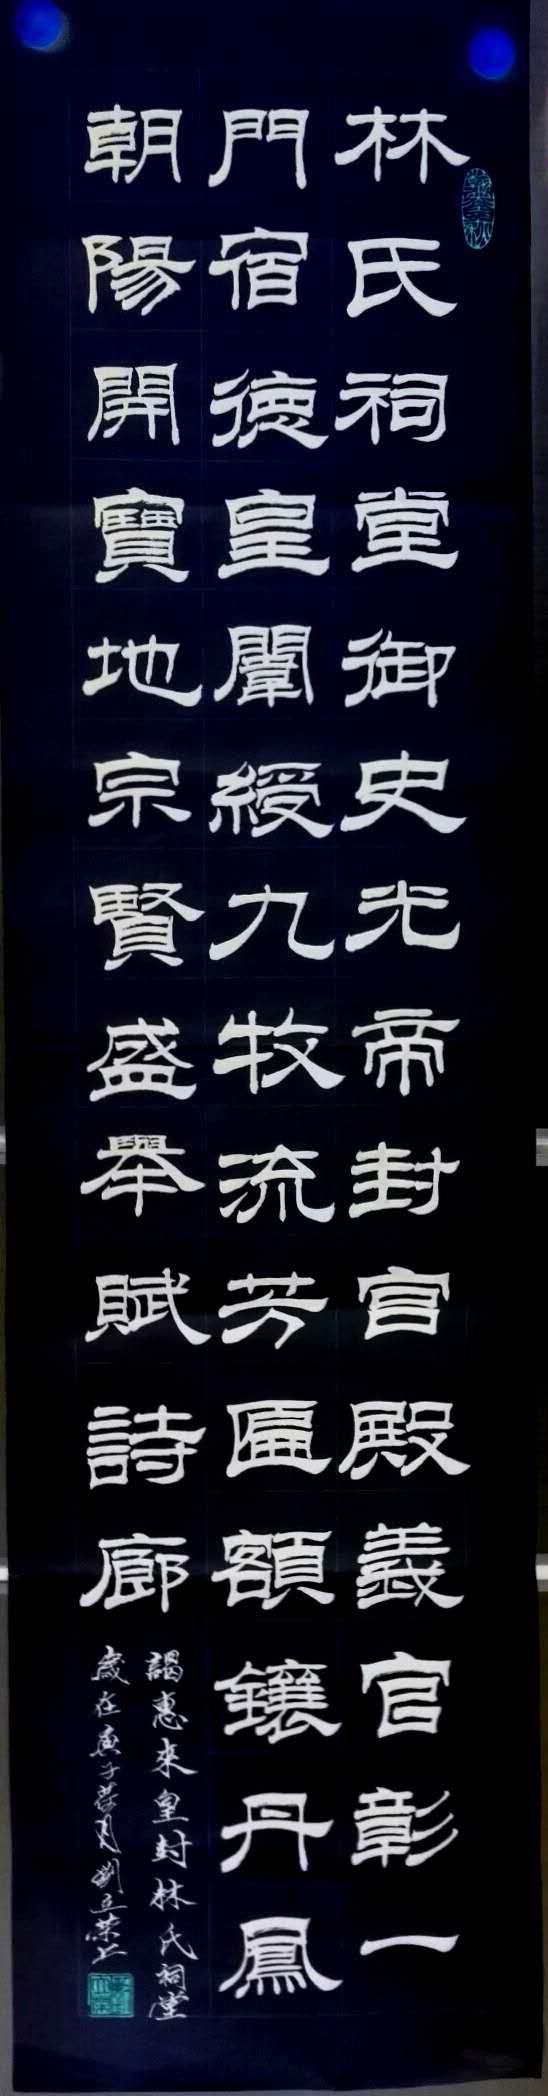 林氏祠堂御史光帝封官殿義官彰一
門宿德皇闈綬九牧流芳匾額鑲丹鳳
朝陽開寶地宗賢盛舉賦詩廊
謁惠來皇封林氏祠堂
歲在庚子荷月劉立榮